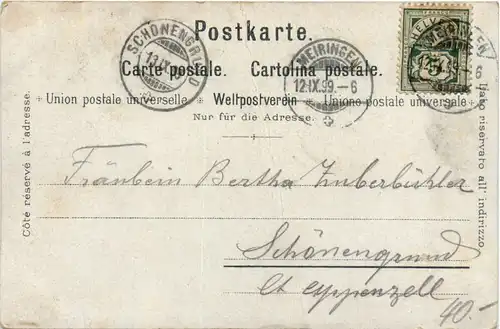 Postkarte.
Carte postale. Cartolina postale.
Union postale universelle. Weltpostverein Unione postale universale
Nur für die Adresse.
Côté réservé à l'adresse.
Lato riservato all' indirizzo
SCHÖNENGRUND
MEIRINGEN
12.IX.99.–6
MEIRINGEN
12.IX.99.–6
HELVETIA
5
Fräulein Bertha Zuberbühler
Schönengrund
Ct Appenzell
40.-